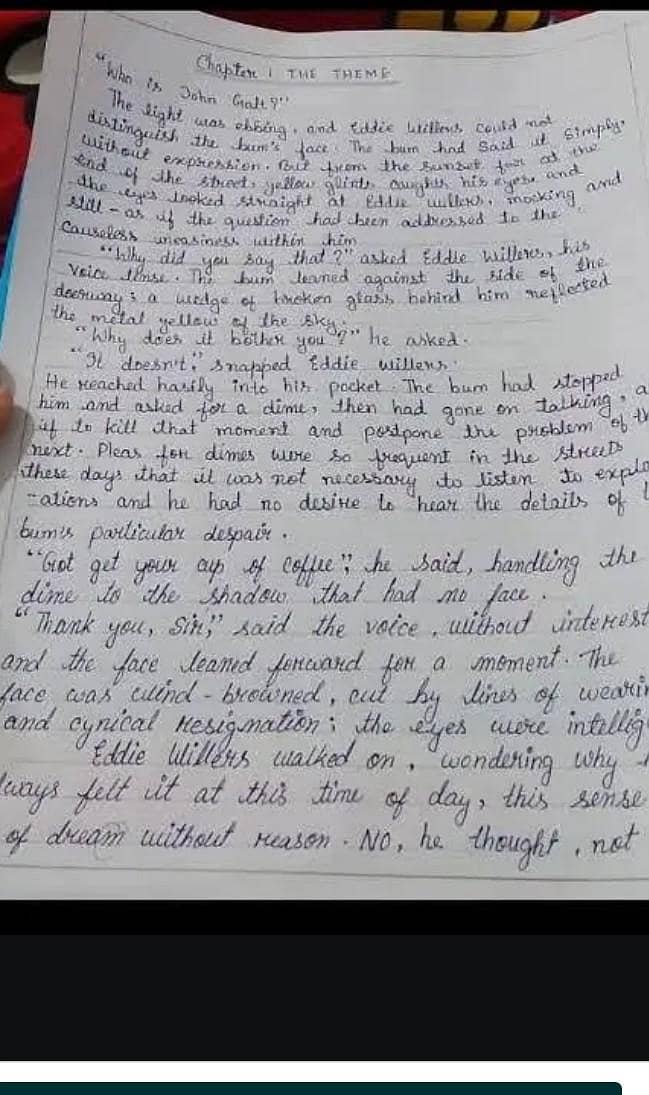 Chapter 1 THE THEME
"Who is John Galt?"
The light was ebbing, and Eddie Willers could not
distinguish the bum's face. The bum had said it simply,
without expression. But from the sunset far at the
end of the street, yellow glints caught his eyes, and
the eyes looked straight at Eddie Willers, mocking and
still - as if the question had been addressed to the
causeless uneasiness within him
"Why did you say that?" asked Eddie Willers, his
voice tense. The bum leaned against the side of the
doorway; a wedge of broken glass behind him reflected
the metal yellow of the sky.
"Why does it bother you?" he asked.
"It doesn't," snapped Eddie willers.
He reached hasily into his pocket. The bum had stopped
him and asked for a dime, then had gone on talking, a
if to kill that moment and postpone the problem of th
next. Pleas for dimes were so frequent in the streets
these days that it was not necessary to listen to expla
-ations and he had no desire to hear the details of t
bum's particular despair.
"Got get your cup of coffee", he said, handling the
dime to the shadow that had no face.
"Thank you, Sir," said the voice, without interest
and the face leaned forward for a moment. The
face was wind-browned, cut by lines of wearin
and cynical resignation; the eyes were intellig
Eddie Willers walked on, wondering why
lways felt it at this time of day, this sense
of dream without reason. NO, he thought, not